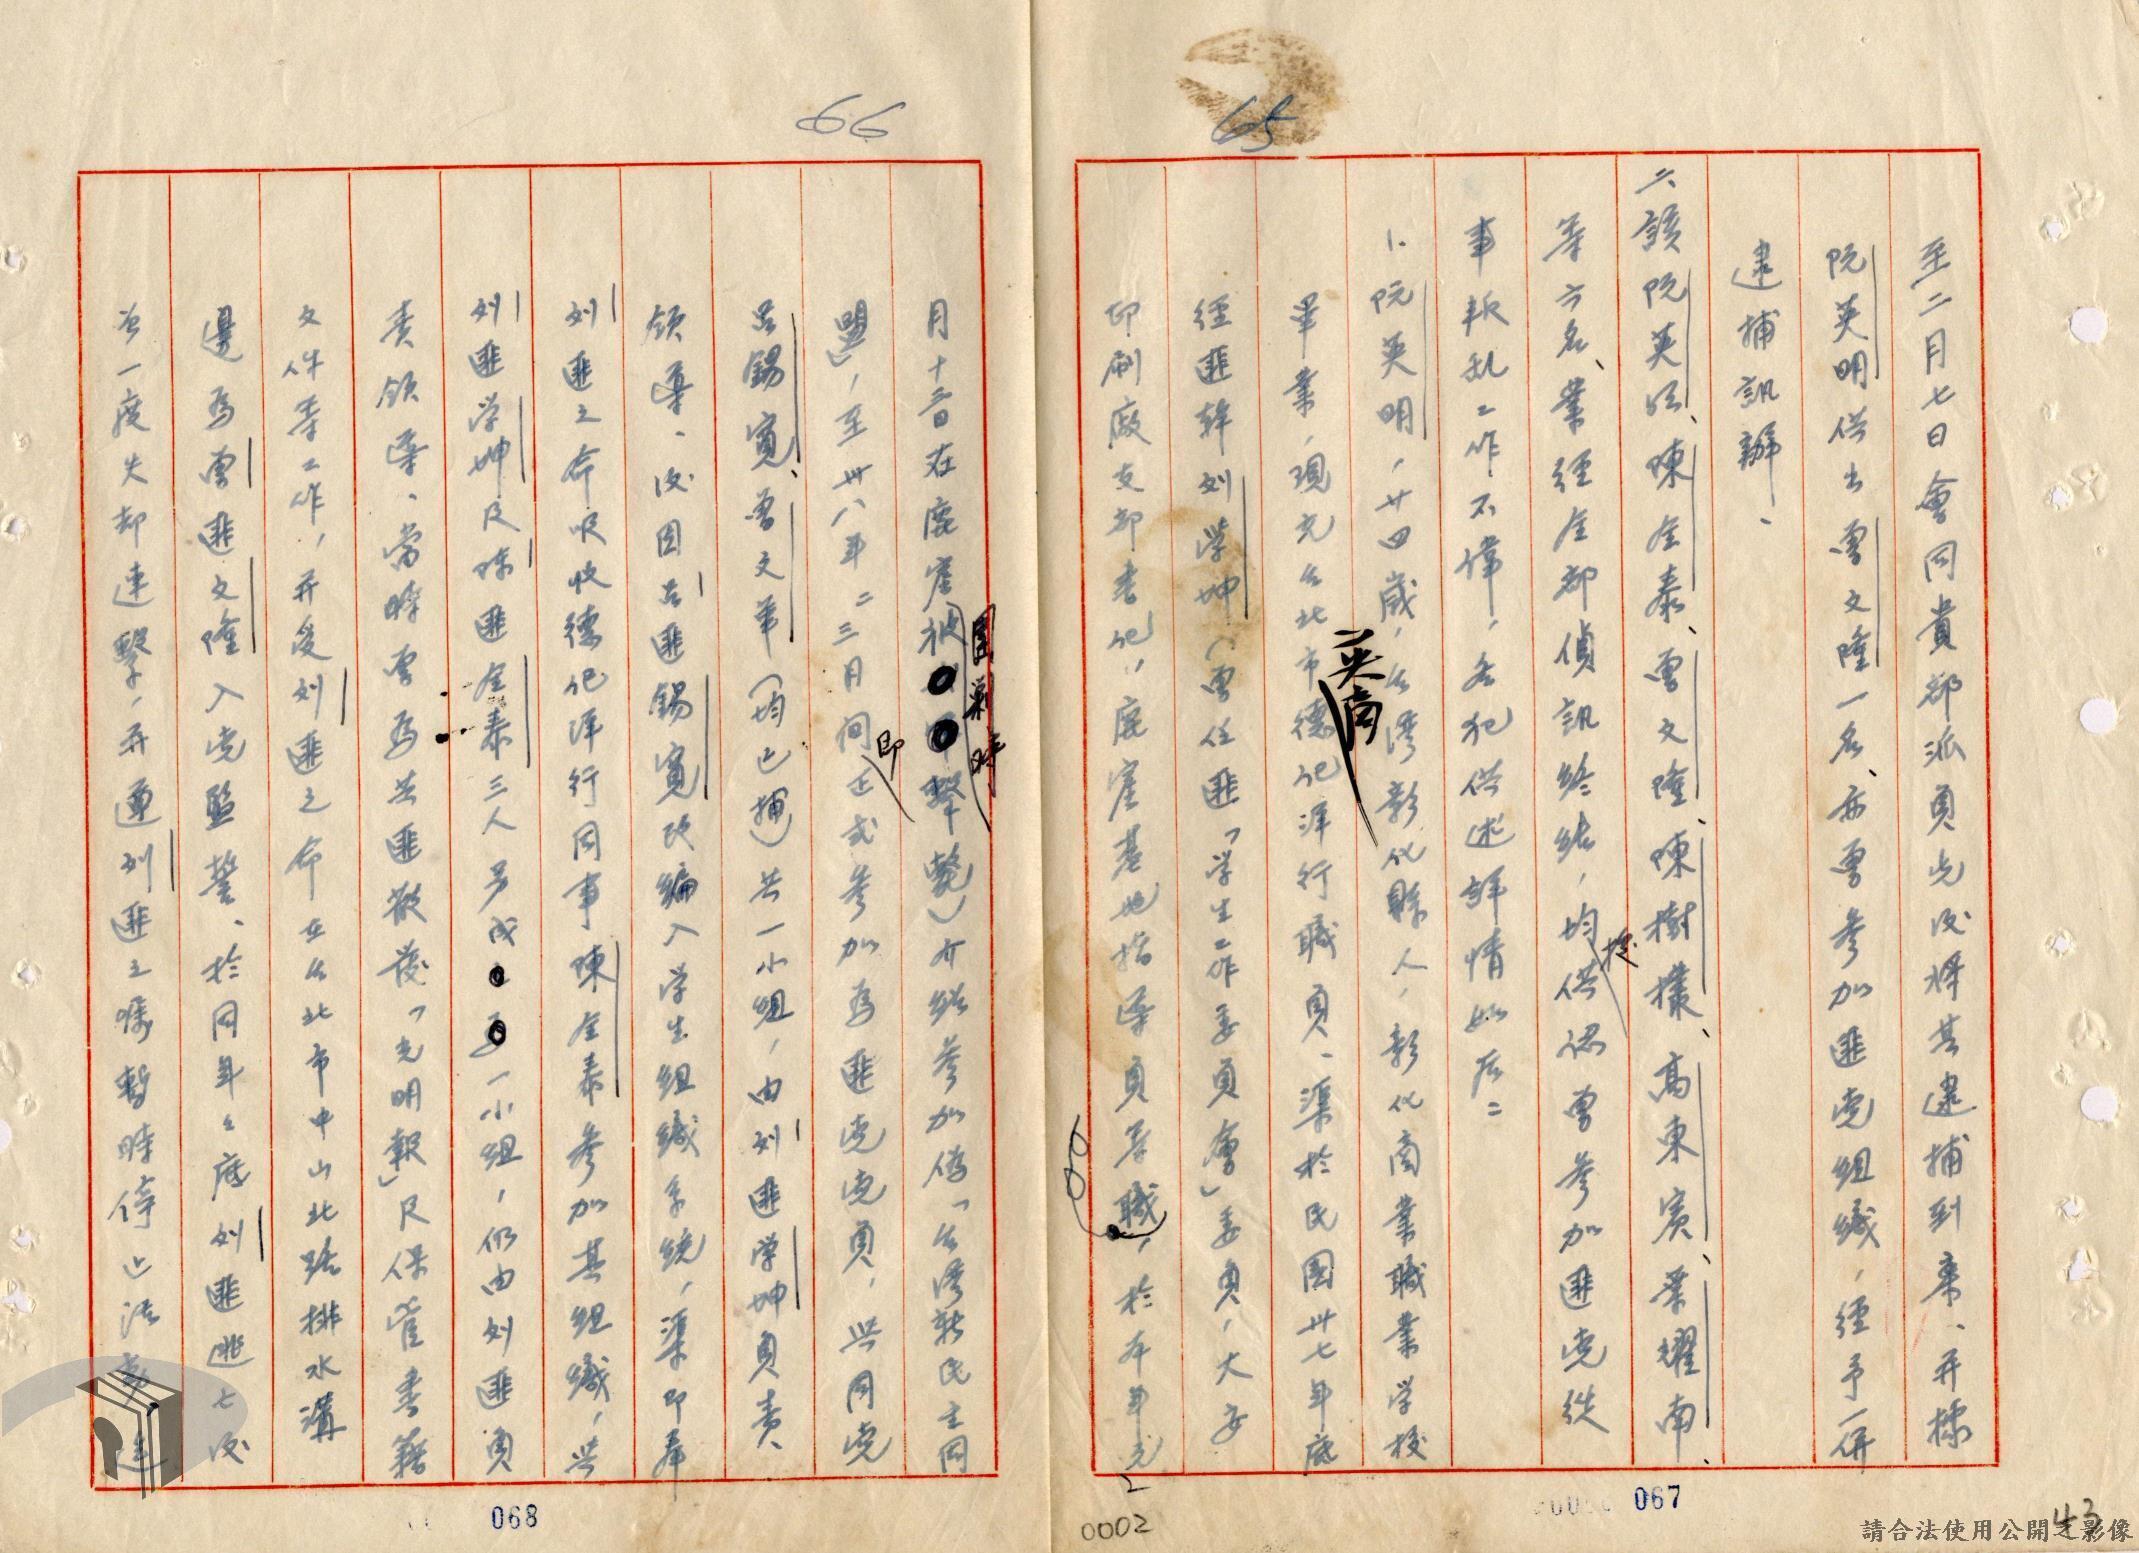 65
至二月七日會同貴部派員先後將其逮捕到案、并據
阮英明供出曾文隆一名、亦曾參加匪党組織，經予一併
逮捕訊辦、
二、該阮英明、陳金泰、曾文隆、陳樹樸、高東濱、葉耀南、
等六名、業經全部偵訊終結，均供認曾參加匪党從
事叛乱工作不諱，各犯供述詳情如后：
1. 阮英明，廿四歲，台灣彰化縣人，彰化商業職業学校
畢業，現充台北市德記洋行職員、渠於民國卅七年底
英商
經匪幹刘学坤（曾任匪「学生工作委員會」委員，大安
印刷廠支部書記，鹿窟基地指導員等職，於本年元
2
0002
067
43
66
月十三日在鹿窟被擊斃）介紹參加偽「台灣新民主同
圍剿時
盟」，至卅八年二三月间正式參加為匪党党員，與同党
即
呂錫寬、曾文華（均已捕）共一小組，由刘匪学坤負責
領導、後因呂匪錫寬改編入学生組織系統，渠即奉
刘匪之命吸收德記洋行同事陳金泰參加其組織，與
刘匪学坤及陳匪金泰三人另成一小組，仍由刘匪負
責領導、當時曾為共匪散發「光明報」及保管書籍
文件等工作，并受刘匪之命在台北市中山北路排水溝
邊為曾匪文隆入党監誓、於同年年底刘匪逃亡後
曾一度失却連繫，并遵刘匪之囑暫時停止活動迄
068
請合法使用公開之影像